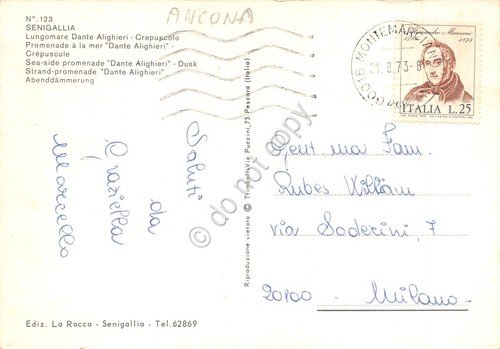 N°. 123
SENIGALLIA
Lungomare Dante Alighieri - Crepuscolo
Promenade à la mer "Dante Alighieri" -
Crépuscule
Sea-side promenade "Dante Alighieri" - Dusk
Strand-promenade "Dante Alighieri" -
Abenddämmerung
ANCONA
Saluti
da
Graziella
Marcello
Ediz. La Rocca - Senigallia - Tel. 62869
Riproduzione vietata © Trimboli Via Puccini, 75 Pescara (Italia)
© do not copy
21.8.73-8
Alessandro Manzoni
1873
ITALIA L. 25
Gent ma Fam.
Rubes
via Soderini, 7
20100 - Milano -